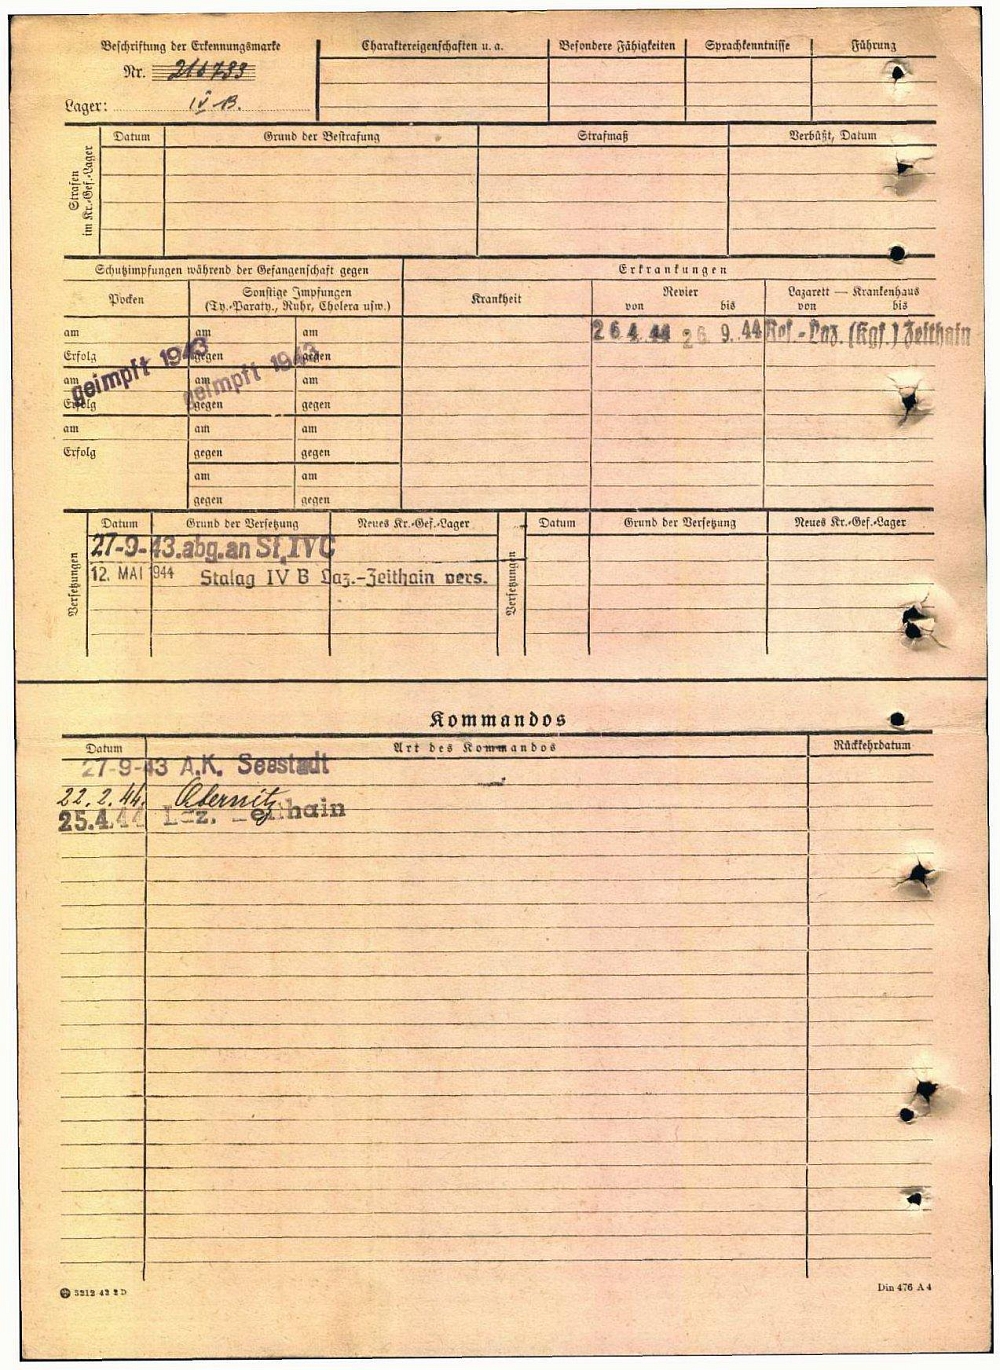 Beschriftung der Erkennungsmarke
Nr. 210733
Lager: IV B.
Charaktereigenschaften u. a.
Besondere Fähigkeiten
Sprachkenntnisse
Führung
Strafen im Kr.-Gef.-Lager
Datum
Grund der Bestrafung
Strafmaß
Verbüßt, Datum
Schutzimpfungen während der Gefangenschaft gegen
Erkrankungen
Pocken
Sonstige Impfungen
(Ty.-Paraty., Ruhr, Cholera usw.)
Krankheit
Revier
von bis
Lazarett — Krankenhaus
von bis
am am am
26.4.44 26.9.44 Res.-Laz. (Kgf.) Zeithain
Erfolg gegen gegen
geimpft 1943 geimpft 1943
am am am
Erfolg gegen gegen
am am am
Erfolg gegen gegen
am am
gegen gegen
Versetzungen
Datum Grund der Versetzung Neues Kr.-Gef.-Lager
27-9-43. abg. an St. IV C
12. MAI 1944 Stalag IV B Laz.-Zeithain vers.
Versetzungen
Datum Grund der Versetzung Neues Kr.-Gef.-Lager
Kommandos
Datum Art des Kommandos Rückkehrdatum
27-9-43 A.K. Seestadt
22.2.44. Obernitz
25.4.44 Laz. Zeithain
3212 42 2 D
Din 476 A 4